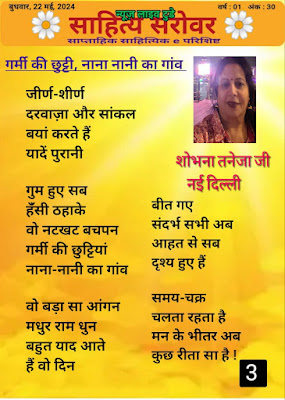 बुधवार, 22 मई, 2024
न्यूज़ लाइव टुडे
वर्ष : 01 अंक : 30
साहित्य सरोवर
साप्ताहिक साहित्यिक e परिशिष्ट
गर्मी की छुट्टी, नाना नानी का गांव
जीर्ण-शीर्ण
दरवाज़ा और सांकल
बयां करते हैं
यादें पुरानी
गुम हुए सब
हँसी ठहाके
वो नटखट बचपन
गर्मी की छुट्टियां
नाना-नानी का गांव
वो बड़ा सा आंगन
मधुर राम धुन
बहुत याद आते
हैं वो दिन
शोभना तनेजा जी
नई दिल्ली
बीत गए
संदर्भ सभी अब
आहत से सब
दृश्य हुए हैं
समय-चक्र
चलता रहता है
मन के भीतर अब
कुछ रीता सा है !
3